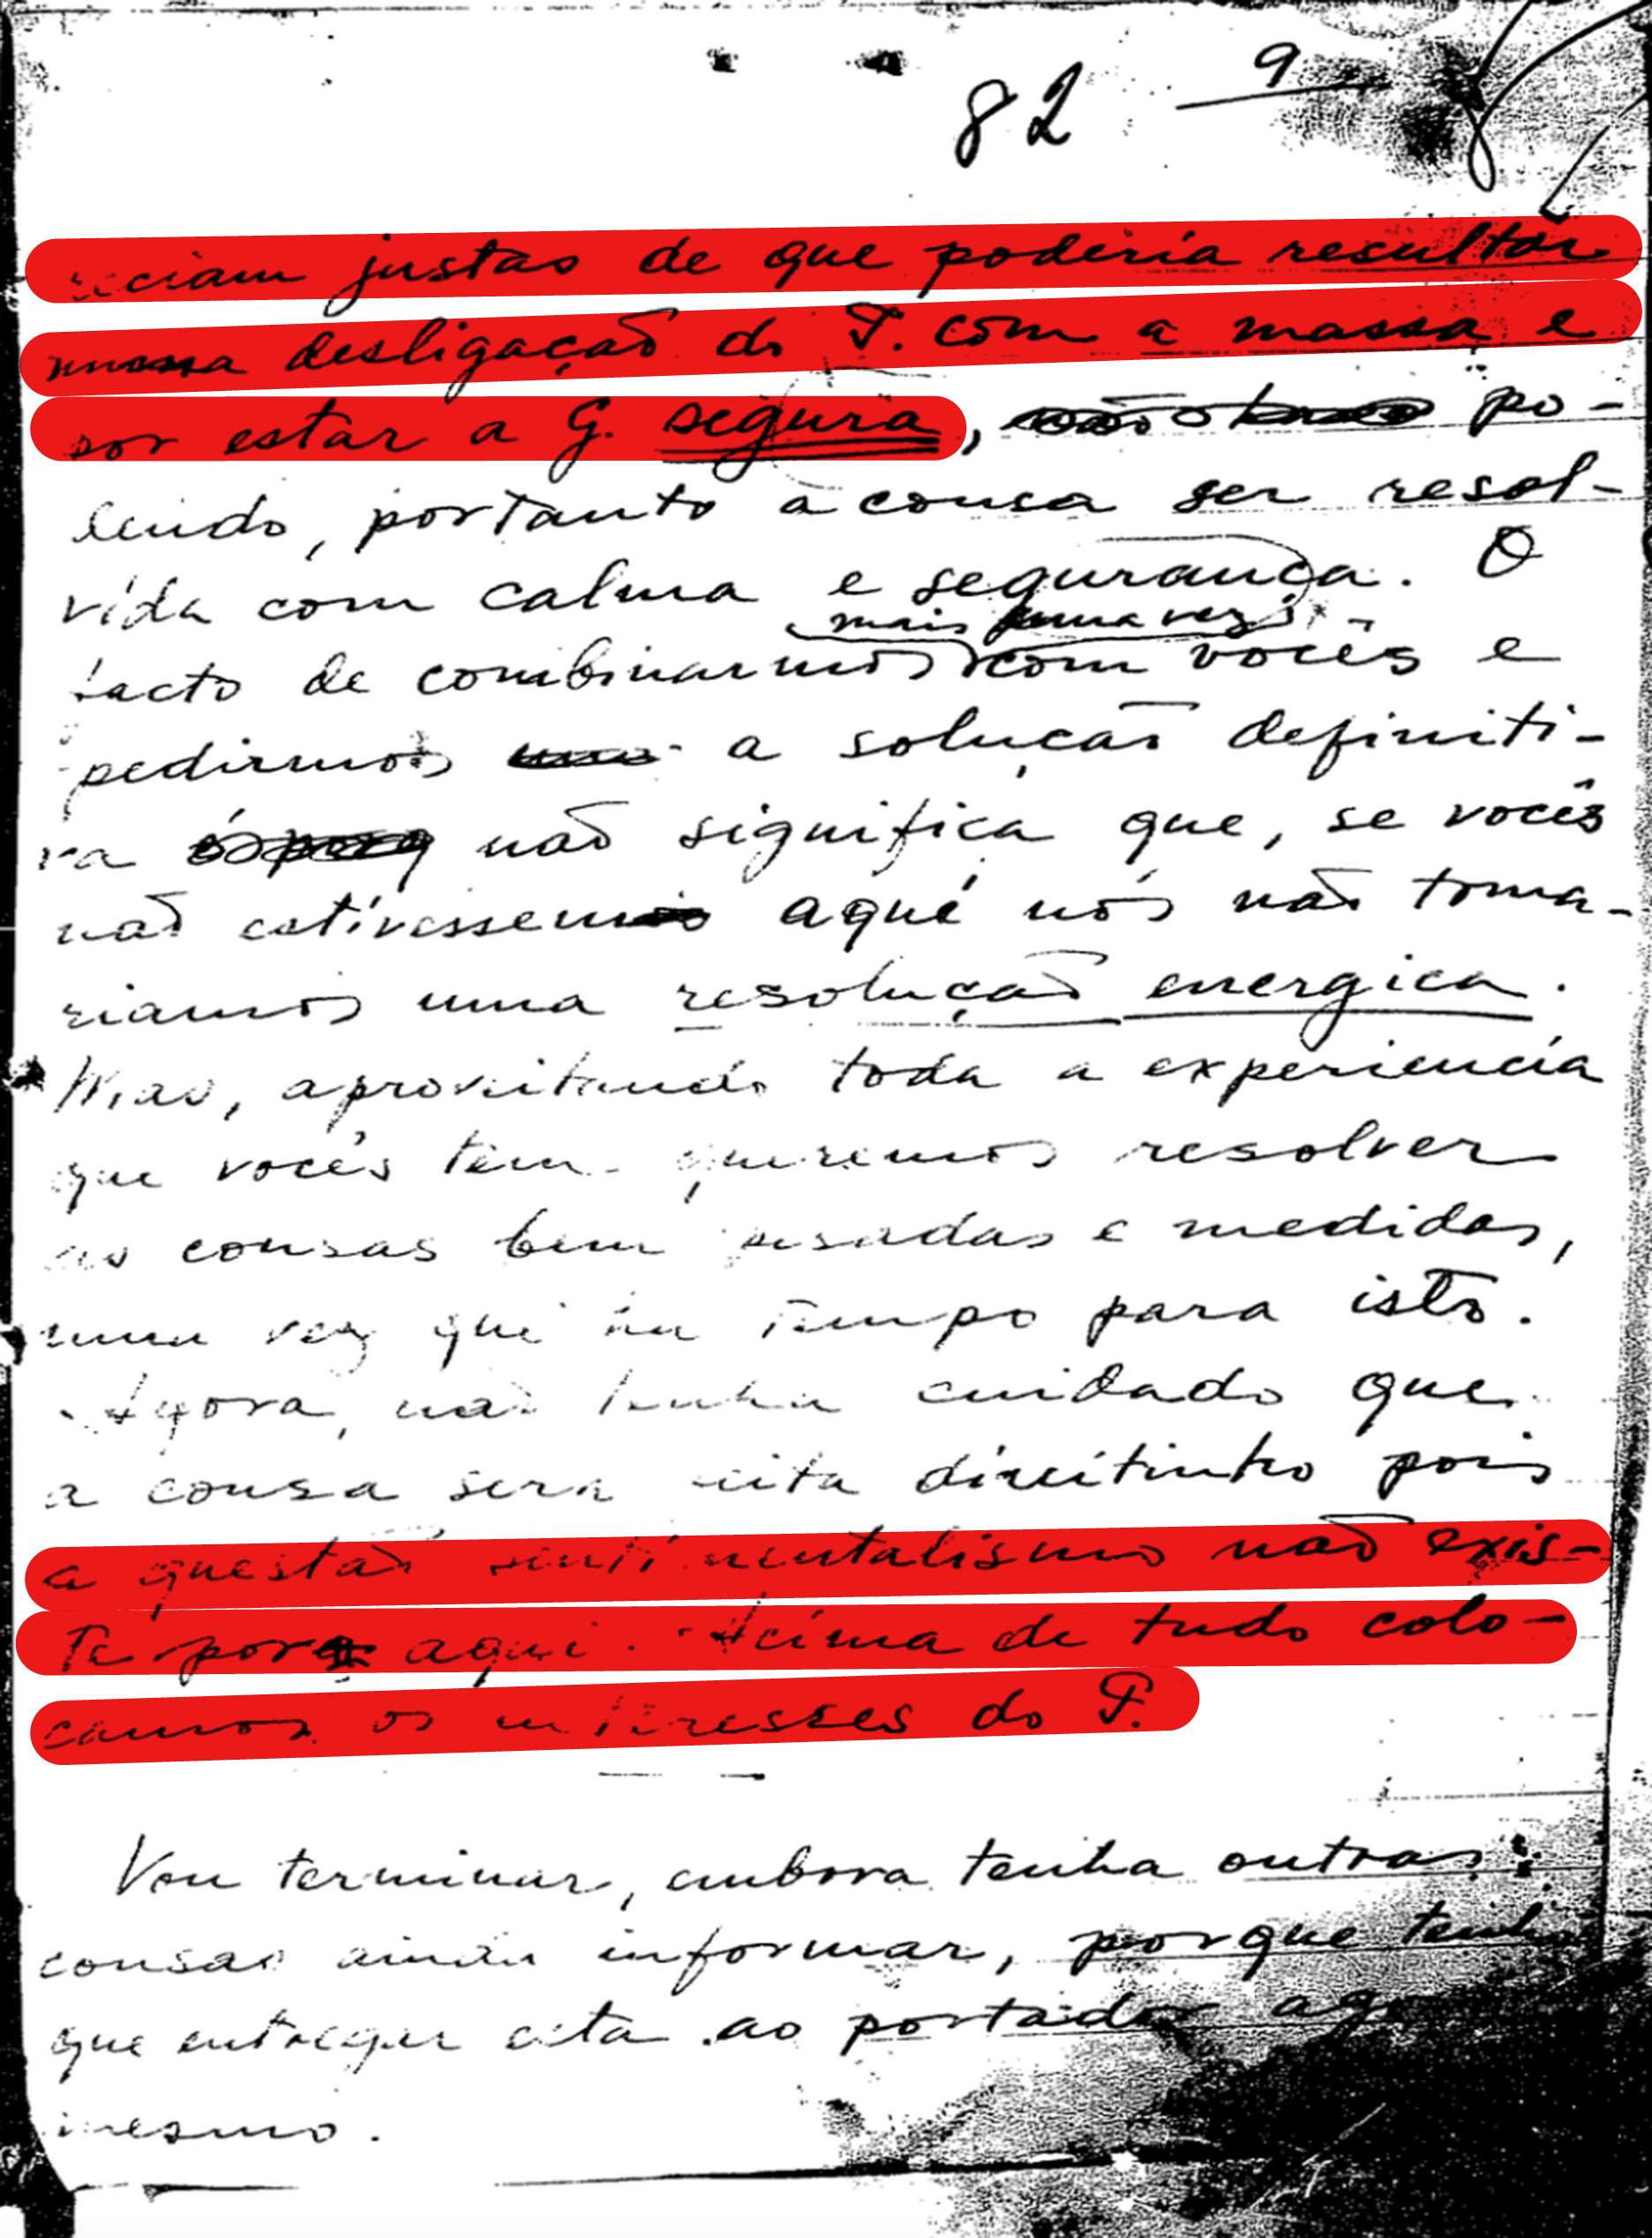 82 9
reciam justas de que poderia resultar
numa desligação do P. com a massa e
por estar a G. segura, po-
dendo, portanto a cousa ser resol-
vida com calma e segurança. O
mais uma vez
facto de combinarmos com vocês e
pedirmos a solução definiti-
va não significa que, se vocês
não estivessem aqui nós não toma-
riamos uma resolução energica.
Mas, aproveitando toda a experiencia
que vocês tem queremos resolver
as cousas bem pesadas e medidas,
uma vez que ha tempo para isto.
Agora, não tenha cuidado que
a cousa será feita direitinho pois
a questão sentimentalismo não exis-
te por aqui. Acima de tudo colo-
camos os interesses do P.
Vou terminar, embora tenha outras
cousas ainda informar, porque tenho
que entregar esta ao portador
mesmo.